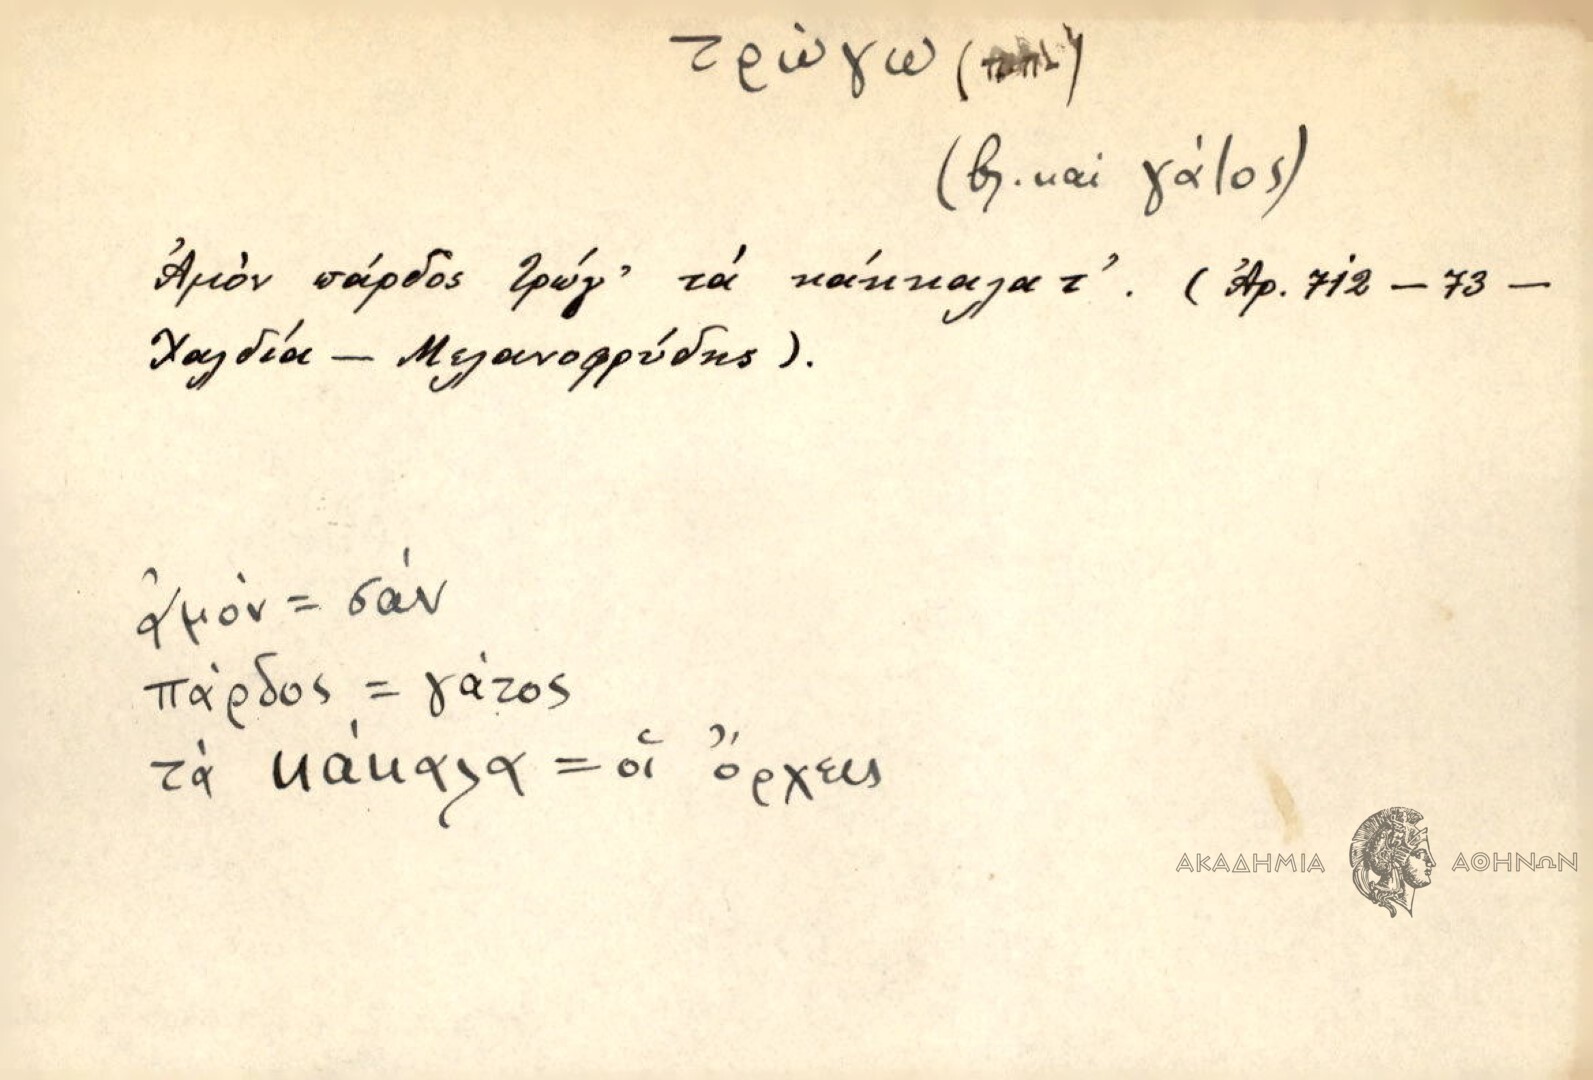 τρώγω
(βλ. καὶ γάτος)
Ἀμὸν πάρδος τρώγ' τά κάκκαλα τ'. (Ἀρ. 712 – 73 –
Χαλδία – Μελανοφρύδης).
ἀμὸν = σάν
πάρδος = γάτος
τὰ κάκαλα = οἱ ὄρχεις
ΑΚΑΔΗΜΙΑ ΑΘΗΝΩΝ